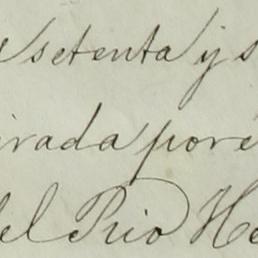 setenta y s
irada por e
del Rio He